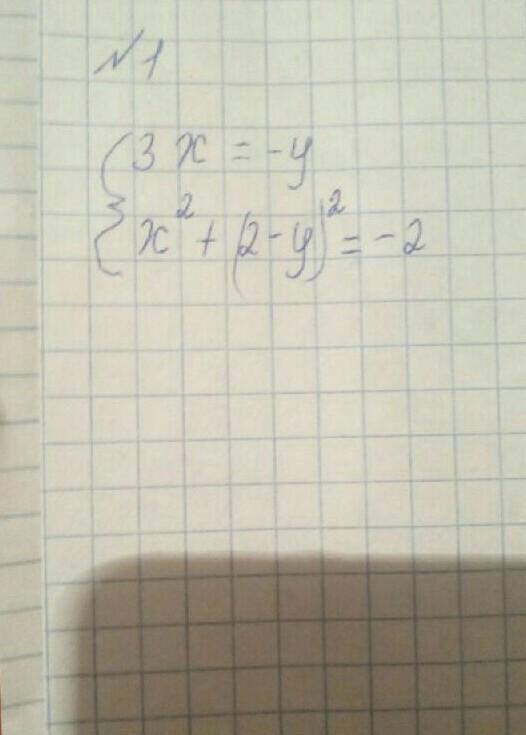 №1
3x = -y
x² + (2-y)² = -2